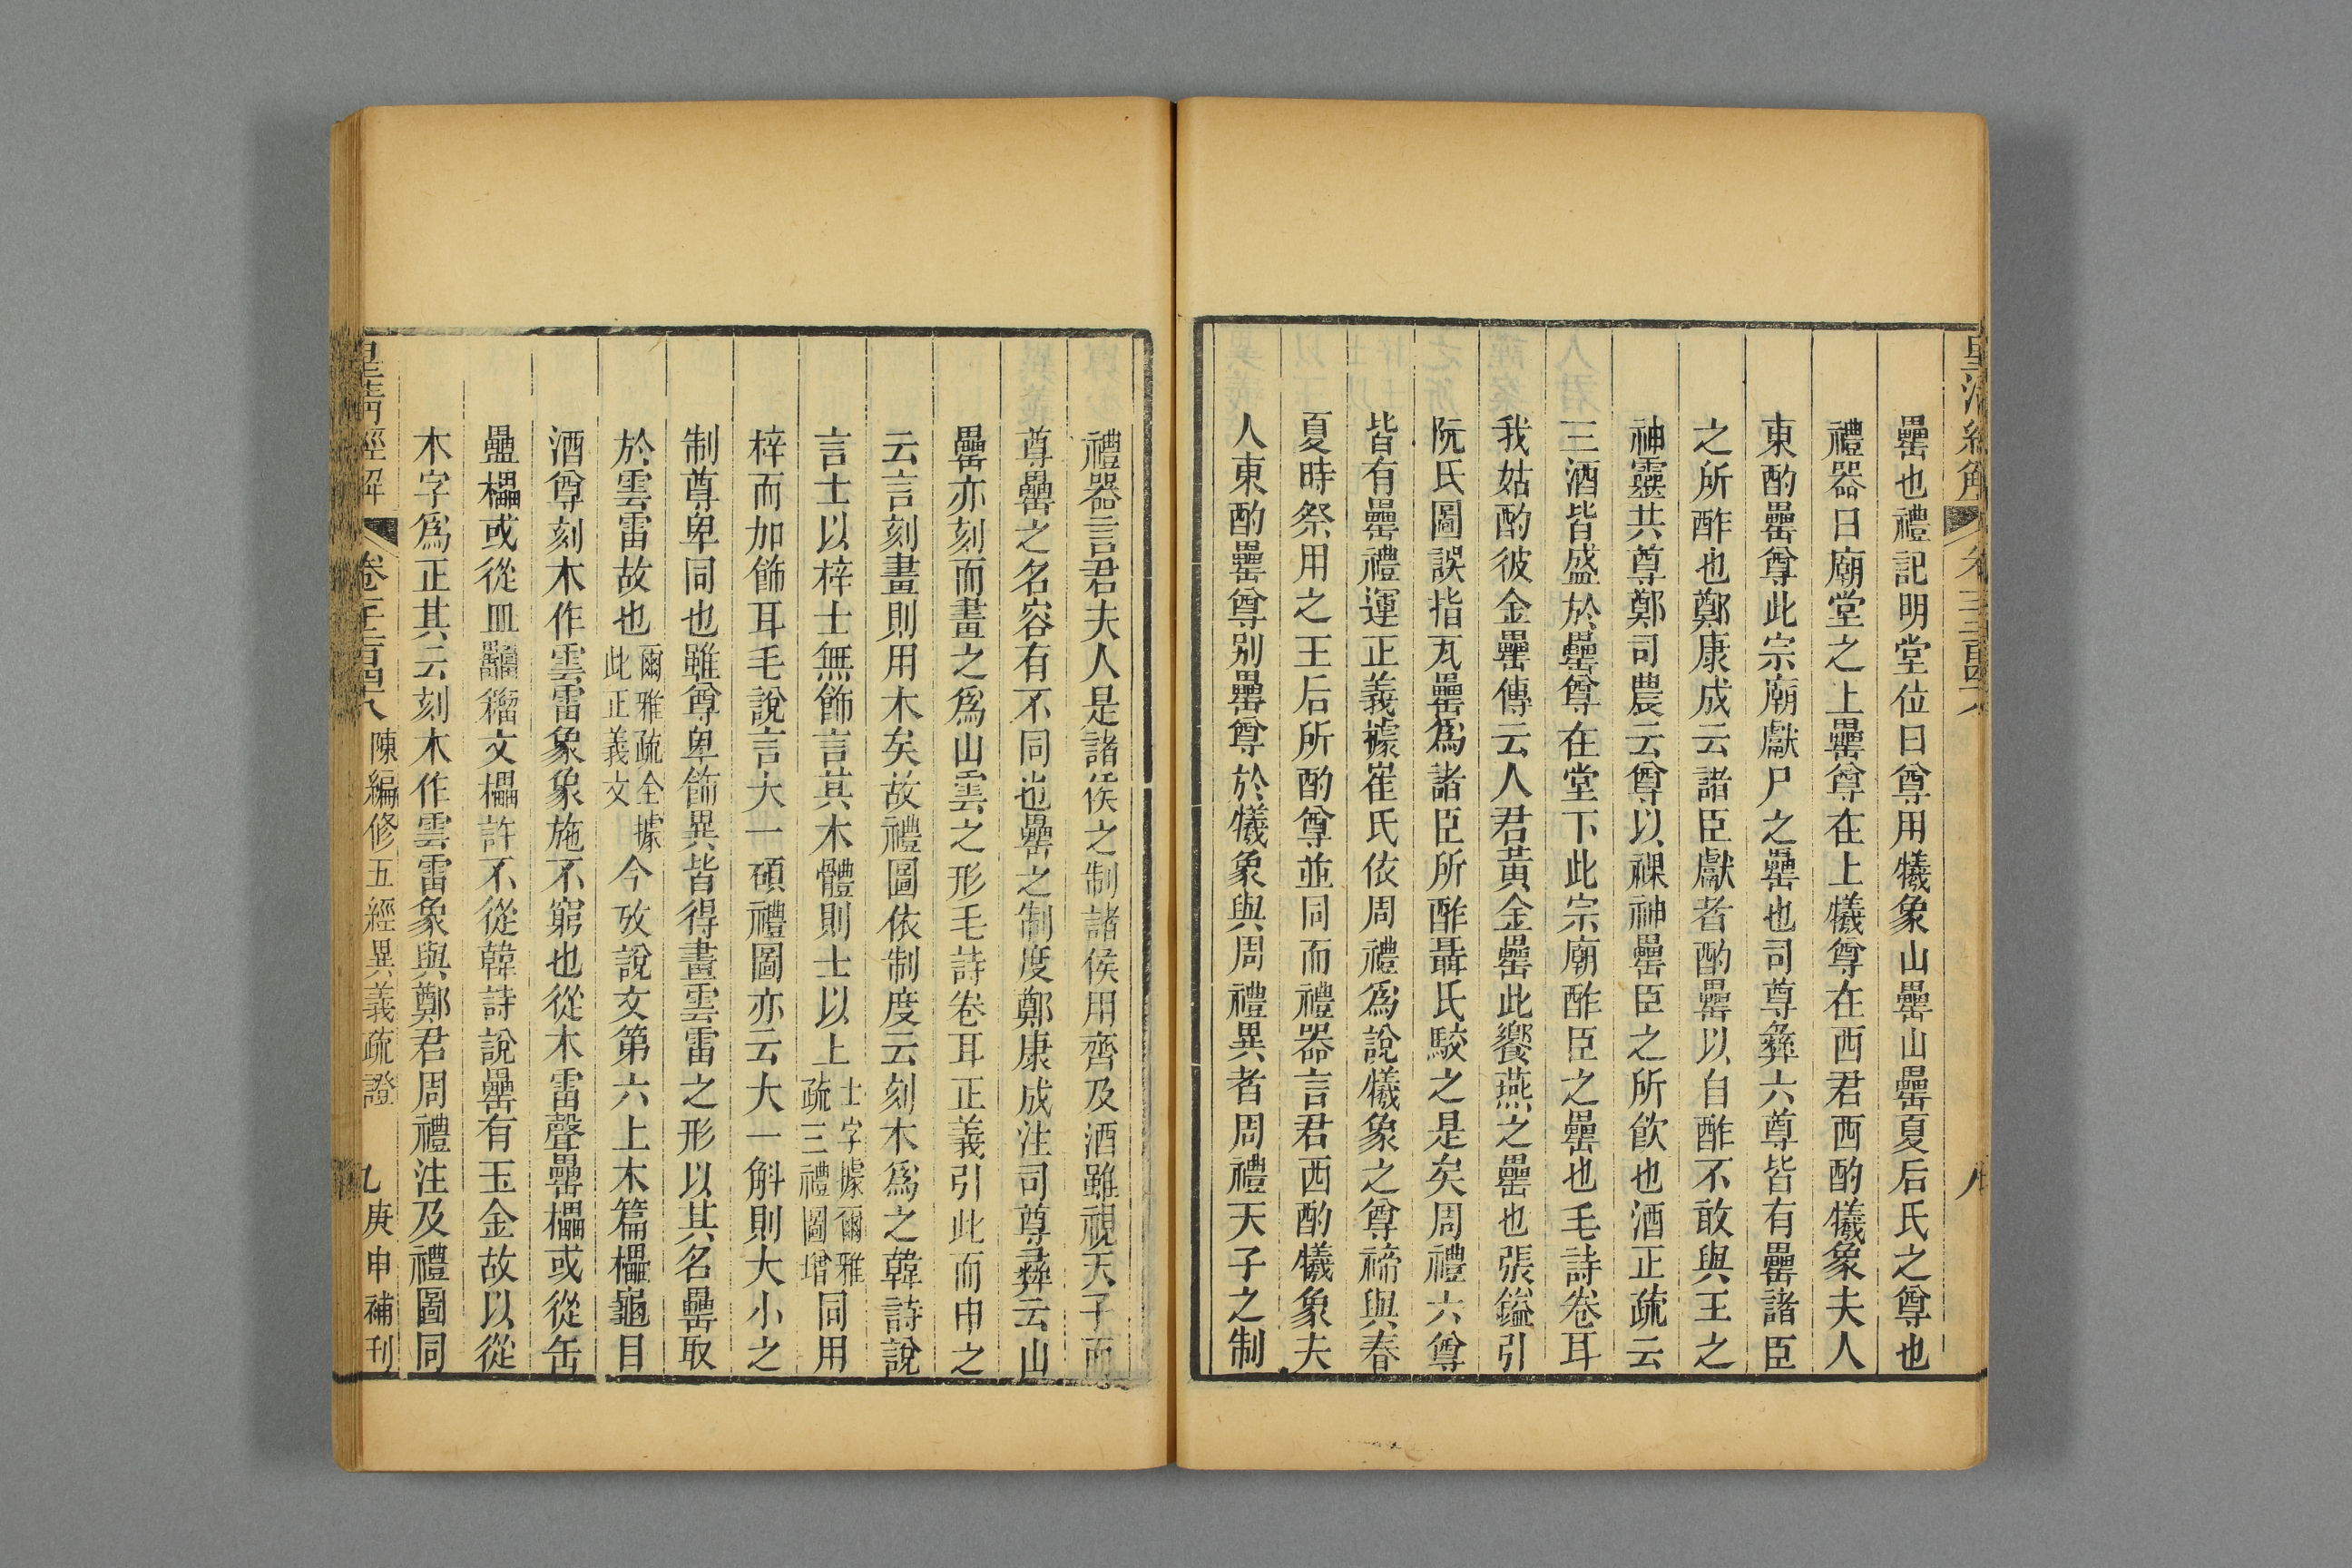 罍也禮記明堂位曰尊用犧象山罍山罍夏后氏之尊也
禮器曰廟堂之上罍尊在上犧尊在西君西酌犧象夫人
東酌罍尊此宗廟獻尸之罍也司尊彝六尊皆有罍諸臣
之所酢也鄭康成云諸臣獻者酌罍以自酢不敢與王之
神靈共尊鄭司農云尊以祼神罍臣之所飲也酒正疏云
三酒皆盛於罍尊在堂下此宗廟酢臣之罍也毛詩卷耳
我姑酌彼金罍傳云人君黃金罍此饗燕之罍也張鎰引
阮氏圖誤指瓦罍爲諸臣所酢聶氏駮之是矣周禮六尊
皆有罍禮運正義據崔氏依周禮爲說犧象之尊禘與春
夏時祭用之王后所酌尊並同而禮器言君西酌犧象夫
人東酌罍尊別罍尊於犧象與周禮異者周禮天子之制
禮器言君夫人是諸侯之制諸侯用齊及酒雖視天子而
尊罍之名容有不同也罍之制度鄭康成注司尊彝云山
罍亦刻而畫之爲山雲之形毛詩卷耳正義引此而申之
云言刻畫則用木矣故禮圖依制度云刻木爲之韓詩說
言士以梓士無飾言其木體則士以上士字據爾雅疏三禮圖增同用
梓而加飾耳毛說言大一碩禮圖亦云大一斛則大小之
制尊卑同也雖尊卑飾異皆得畫雲雷之形以其名罍取
於雲雷故也爾雅疏全據此正義文今攷說文第六上木篇櫑龜目
酒尊刻木作雲雷象象施不窮也從木畾聲罍櫑或從缶
𥂩櫑或從皿𤳳籀文櫑許不從韓詩說罍有玉金故以從
木字爲正其云刻木作雲雷象與鄭君周禮注及禮圖同
皇清經解 卷千二百四十八 陳編修五經異義疏證 庚申補刊